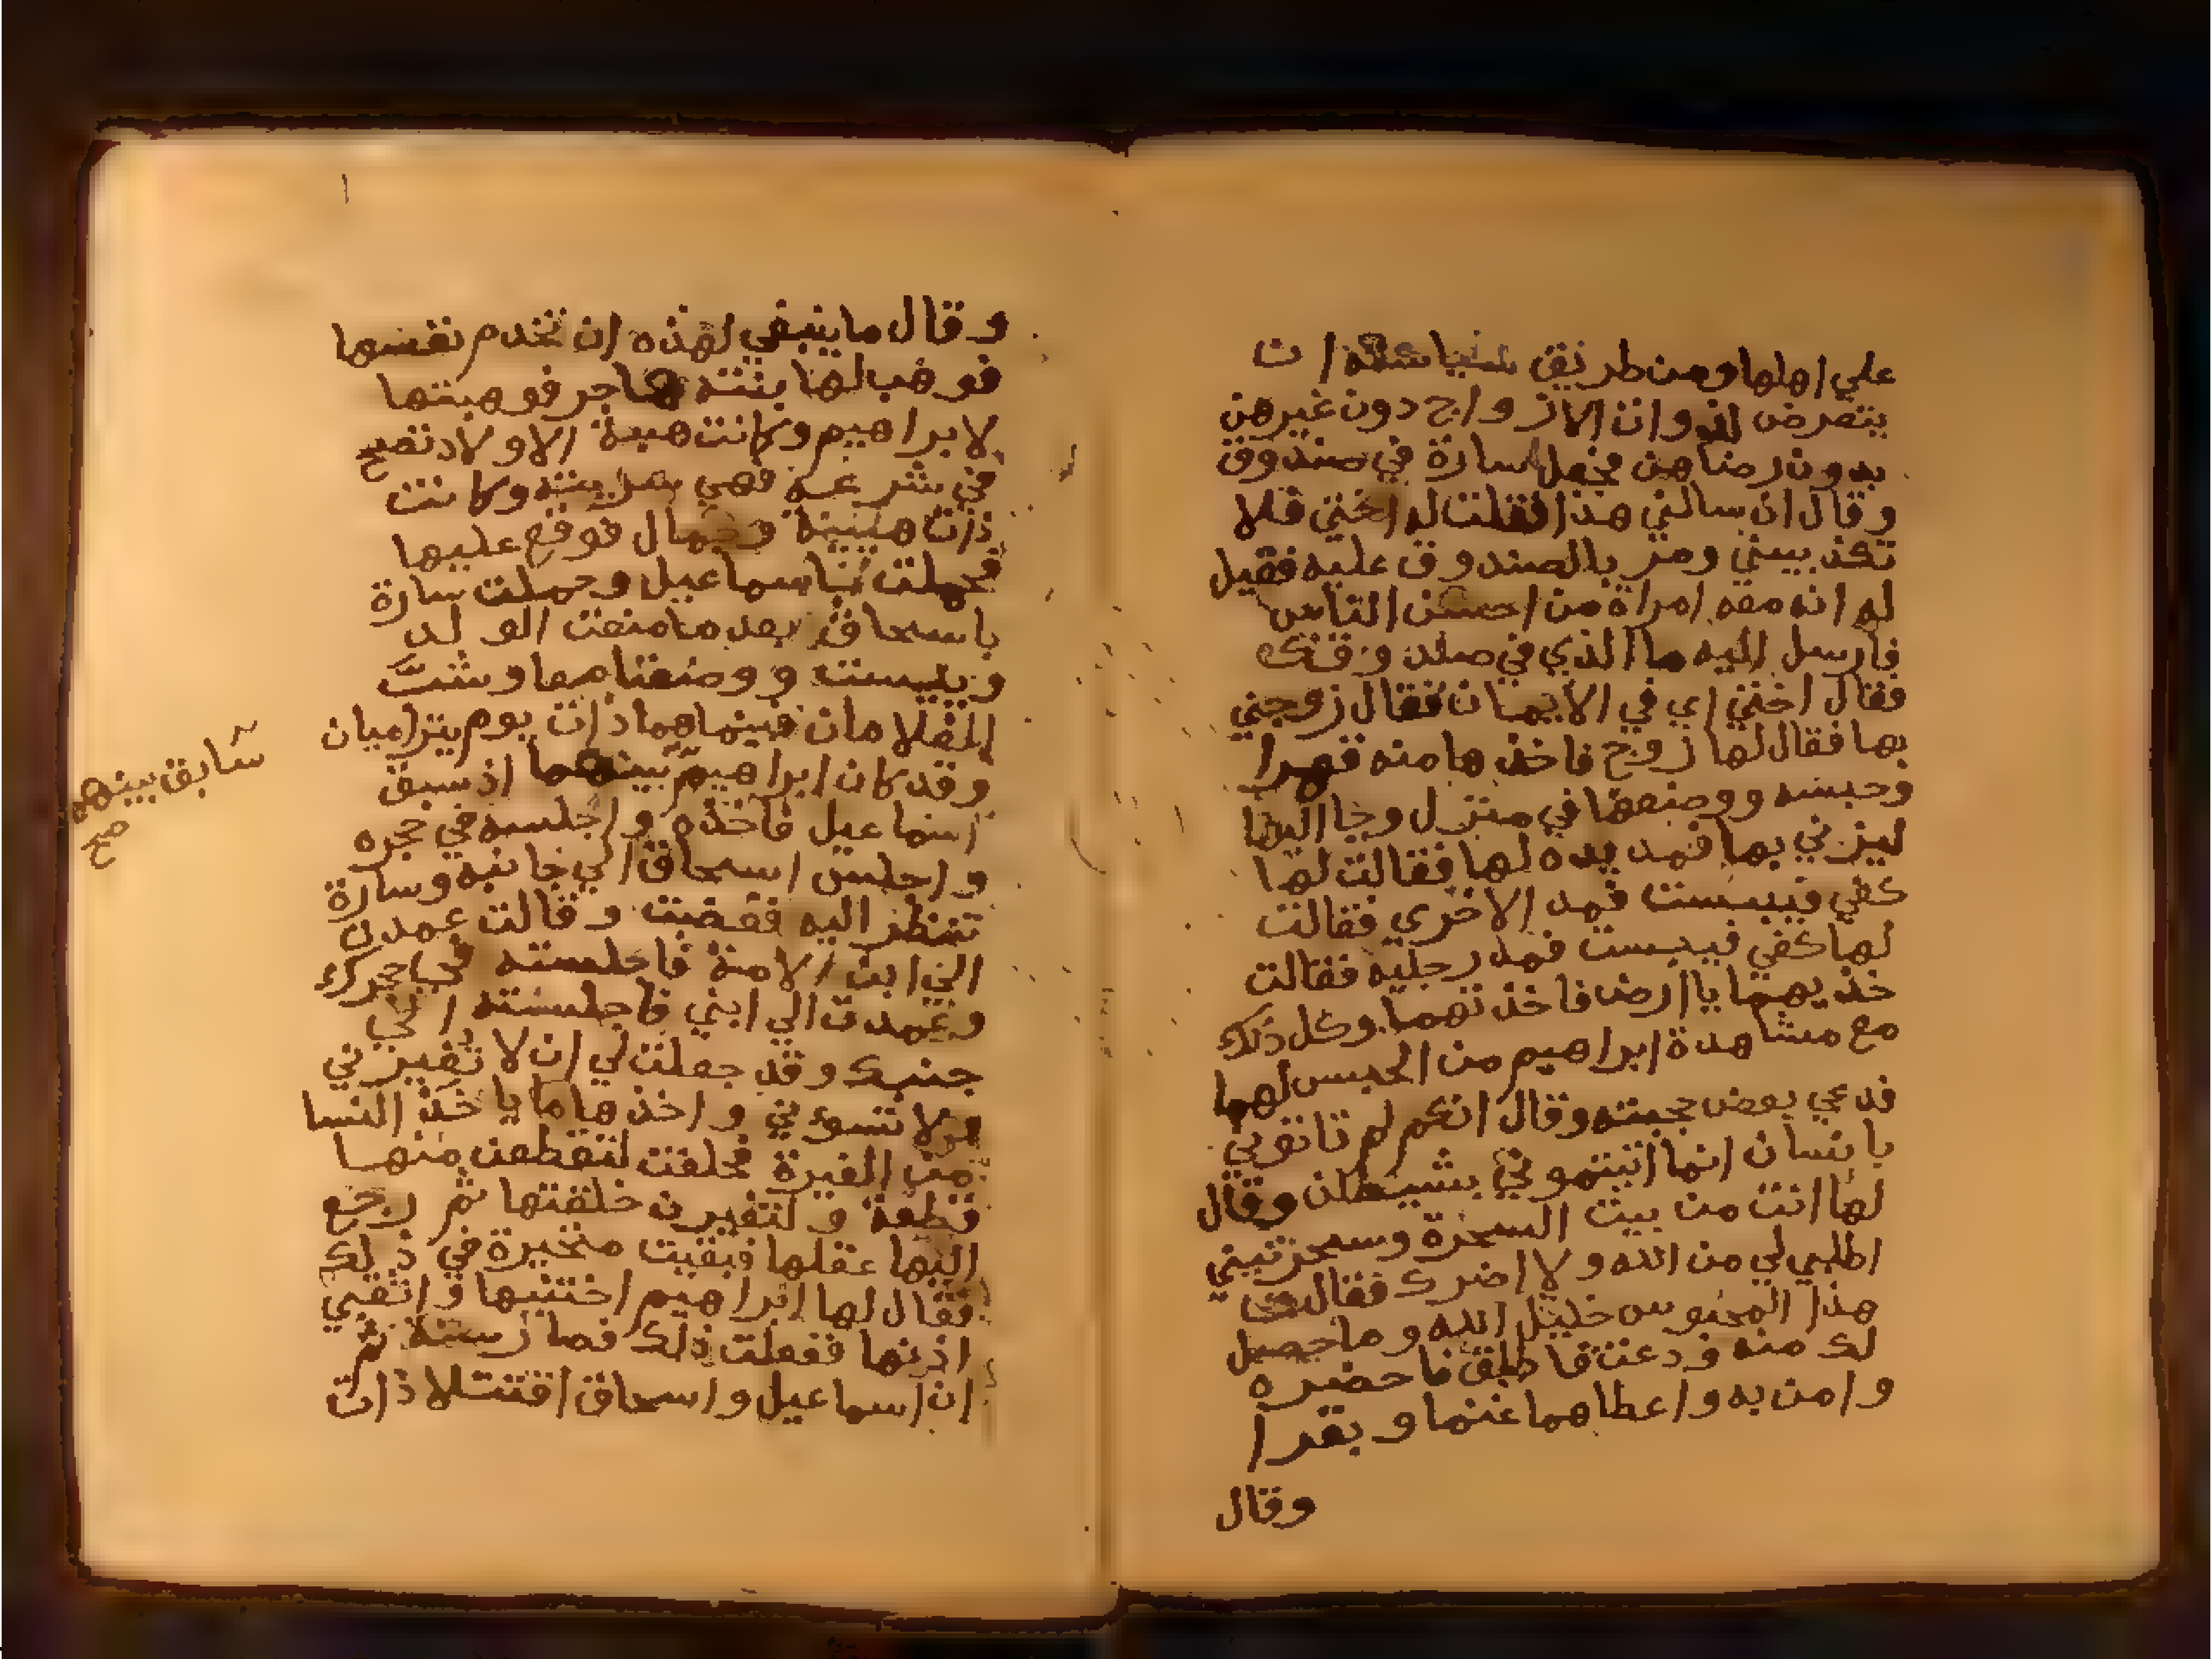 علي اهلها ومن طريق ان
يتعرض لذوات الازواج دون غيرهن
بدون رضاهن فجعل سارة في صندوق
وقال ان سالني هذا فقلت له اختي فلا
تكذبيني ومر بالصندوق عليه فقيل
له انه معه امراة من احسن الناس
فارسل اليه ما الذي في صندوقك
فقال اختي اي في الايمان فقال زوجني
بها فقال لها زوج فاخذها منه قهرا
وحبسه ووضعها في منزل وجا اليها
ليزني بها فمد يده لها فقالت لها
كفي فيبست فمد الاخري فقالت
لها كفي فيبست فمد رجليه فقالت
خذيهما يا ارض فاخذتهما وكل ذلك
مع مشاهدة ابراهيم من الحبس لهما
فدعي بعض حجبته وقال انكم لم تاتوني
بانسان انما اتيتموني بشيطان وقال
لها انت من بيت السحرة وسحرتيني
اطلبي لي من الله ولا اضرك فقالت
هذا المحبوس خليل الله وما حصل
لك منه ودعت فاطلق فاحضره
وامن به واعطاهما غنما وبقرا
وقال
وقال ما ينبغي لهذه ان تخدم نفسها
فوهب لها بنته هاجر فوهبتها
لابراهيم وكانت هبة الاولاد تصح
في شرعه فهي سريته وكانت
ذات هيئة وجمال فوقع عليها
فحملت باسماعيل وحملت سارة
باسحاق بعد ما منعت الولد
ويبست ووضعتا معا وشبَّ
الغلامان فبينما هما ذات يوم يتراميان
وقد كان ابراهيم بينهما اذ سبق
اسماعيل فاخذه واجلسه في حجره
واجلس اسحاق الي جانبه وسارة
تنظر اليه فغضبت وقالت عمدت
الي ابن الامة فاجلسته في حجرك
وعمدت الي ابني فاجلسته الي
جنبك وقد جعلت لي ان لا تغيرني
ولا تسوءني واخذها ما ياخذ النسا
من الغيرة فحلفت لتقطعن منها
قطعة ولتغيرن خلقتها ثم رجع
اليها عقلها فبقيت متحيرة في ذلك
فقال لها ابراهيم اختنيها واثقبي
اذنها ففعلت ذلك فصارت سنة ثم
ان اسماعيل واسحاق اقتتلا ذات
سابق بينهما
صح